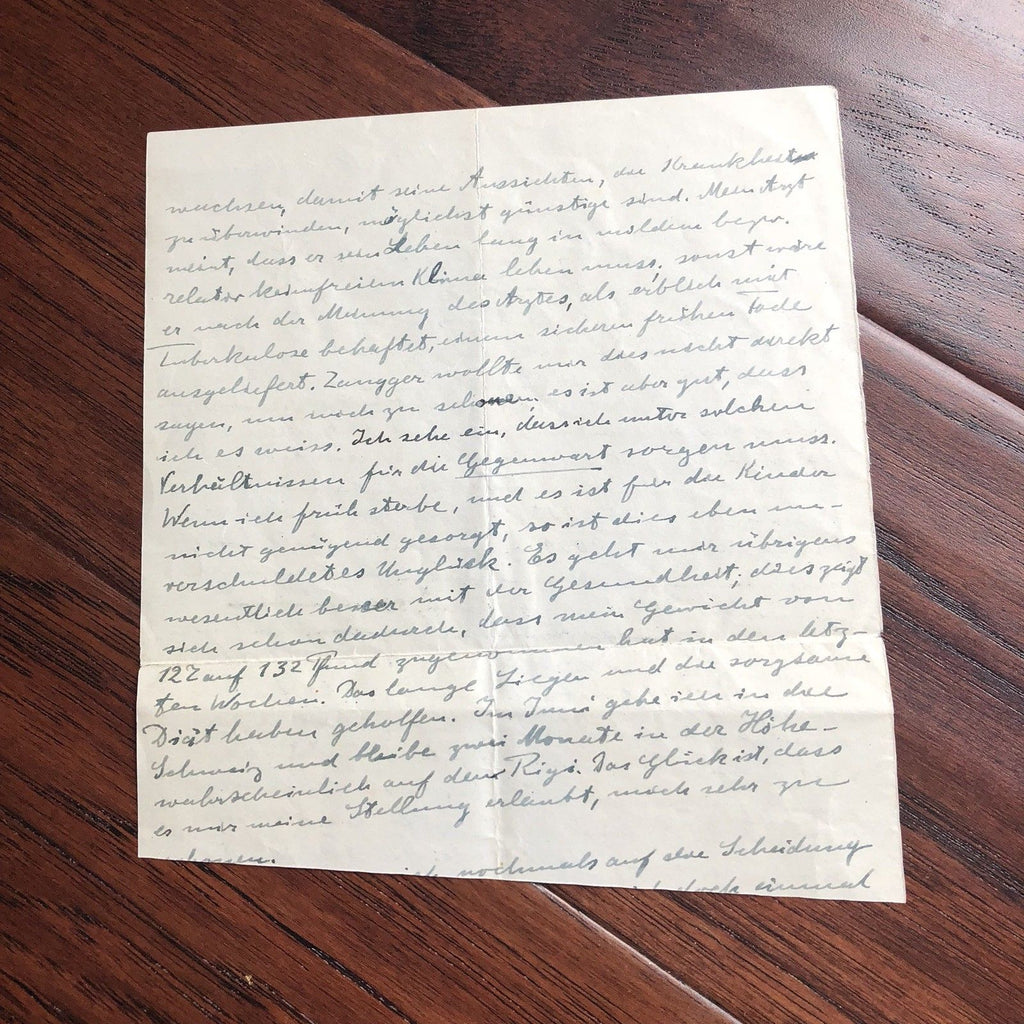 wachsen, damit seine Aussichten, die Krankheit
zu überwinden, möglichst günstige sind. Mein Arzt
meint, dass er sein Leben lang in mildem bezw.
relativ keimfreiem Klima leben muss, sonst wäre
er nach der Meinung des Arztes, als erblich mit
Tuberkulose behaftet, einem sicheren frühen Tode
ausgeliefert. Zangger wollte mir dies nicht direkt
sagen, um mich zu schonen, es ist aber gut, dass
ich es weiss. Ich sehe ein, dass ich unter solchen
Verhältnissen für die Gegenwart sorgen muss.
Wenn ich früh sterbe, und es ist für die Kinder
nicht genügend gesorgt, so ist dies eben un-
verschuldetes Unglück. Es geht mir übrigens
wesentlich besser mit der Gesundheit; dies zeigt
sich schon dadurch, dass mein Gewicht von
127 auf 132 Pfund zugenommen hat in den letz-
ten Wochen. Das lange Liegen und die sorgsame
Diät haben geholfen. Im Juni gehe ich in die
Schweiz und bleibe zwei Monate in der Höhe-
wahrscheinlich auf dem Rigi. Das Glück ist, dass
es mir meine Stellung erlaubt, mich sehr zu
nochmals auf die Scheidung
doch einmal